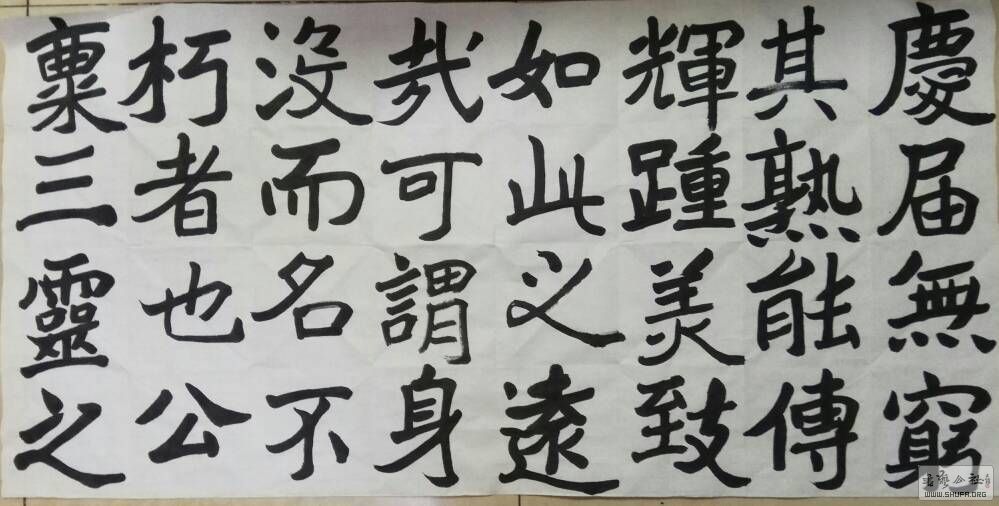 慶届無窮
其熟能傳
輝踵美致
如此之遠
哉可謂身
没而名不
朽者也公
稟三靈之
WWW.SHUFA.ORG